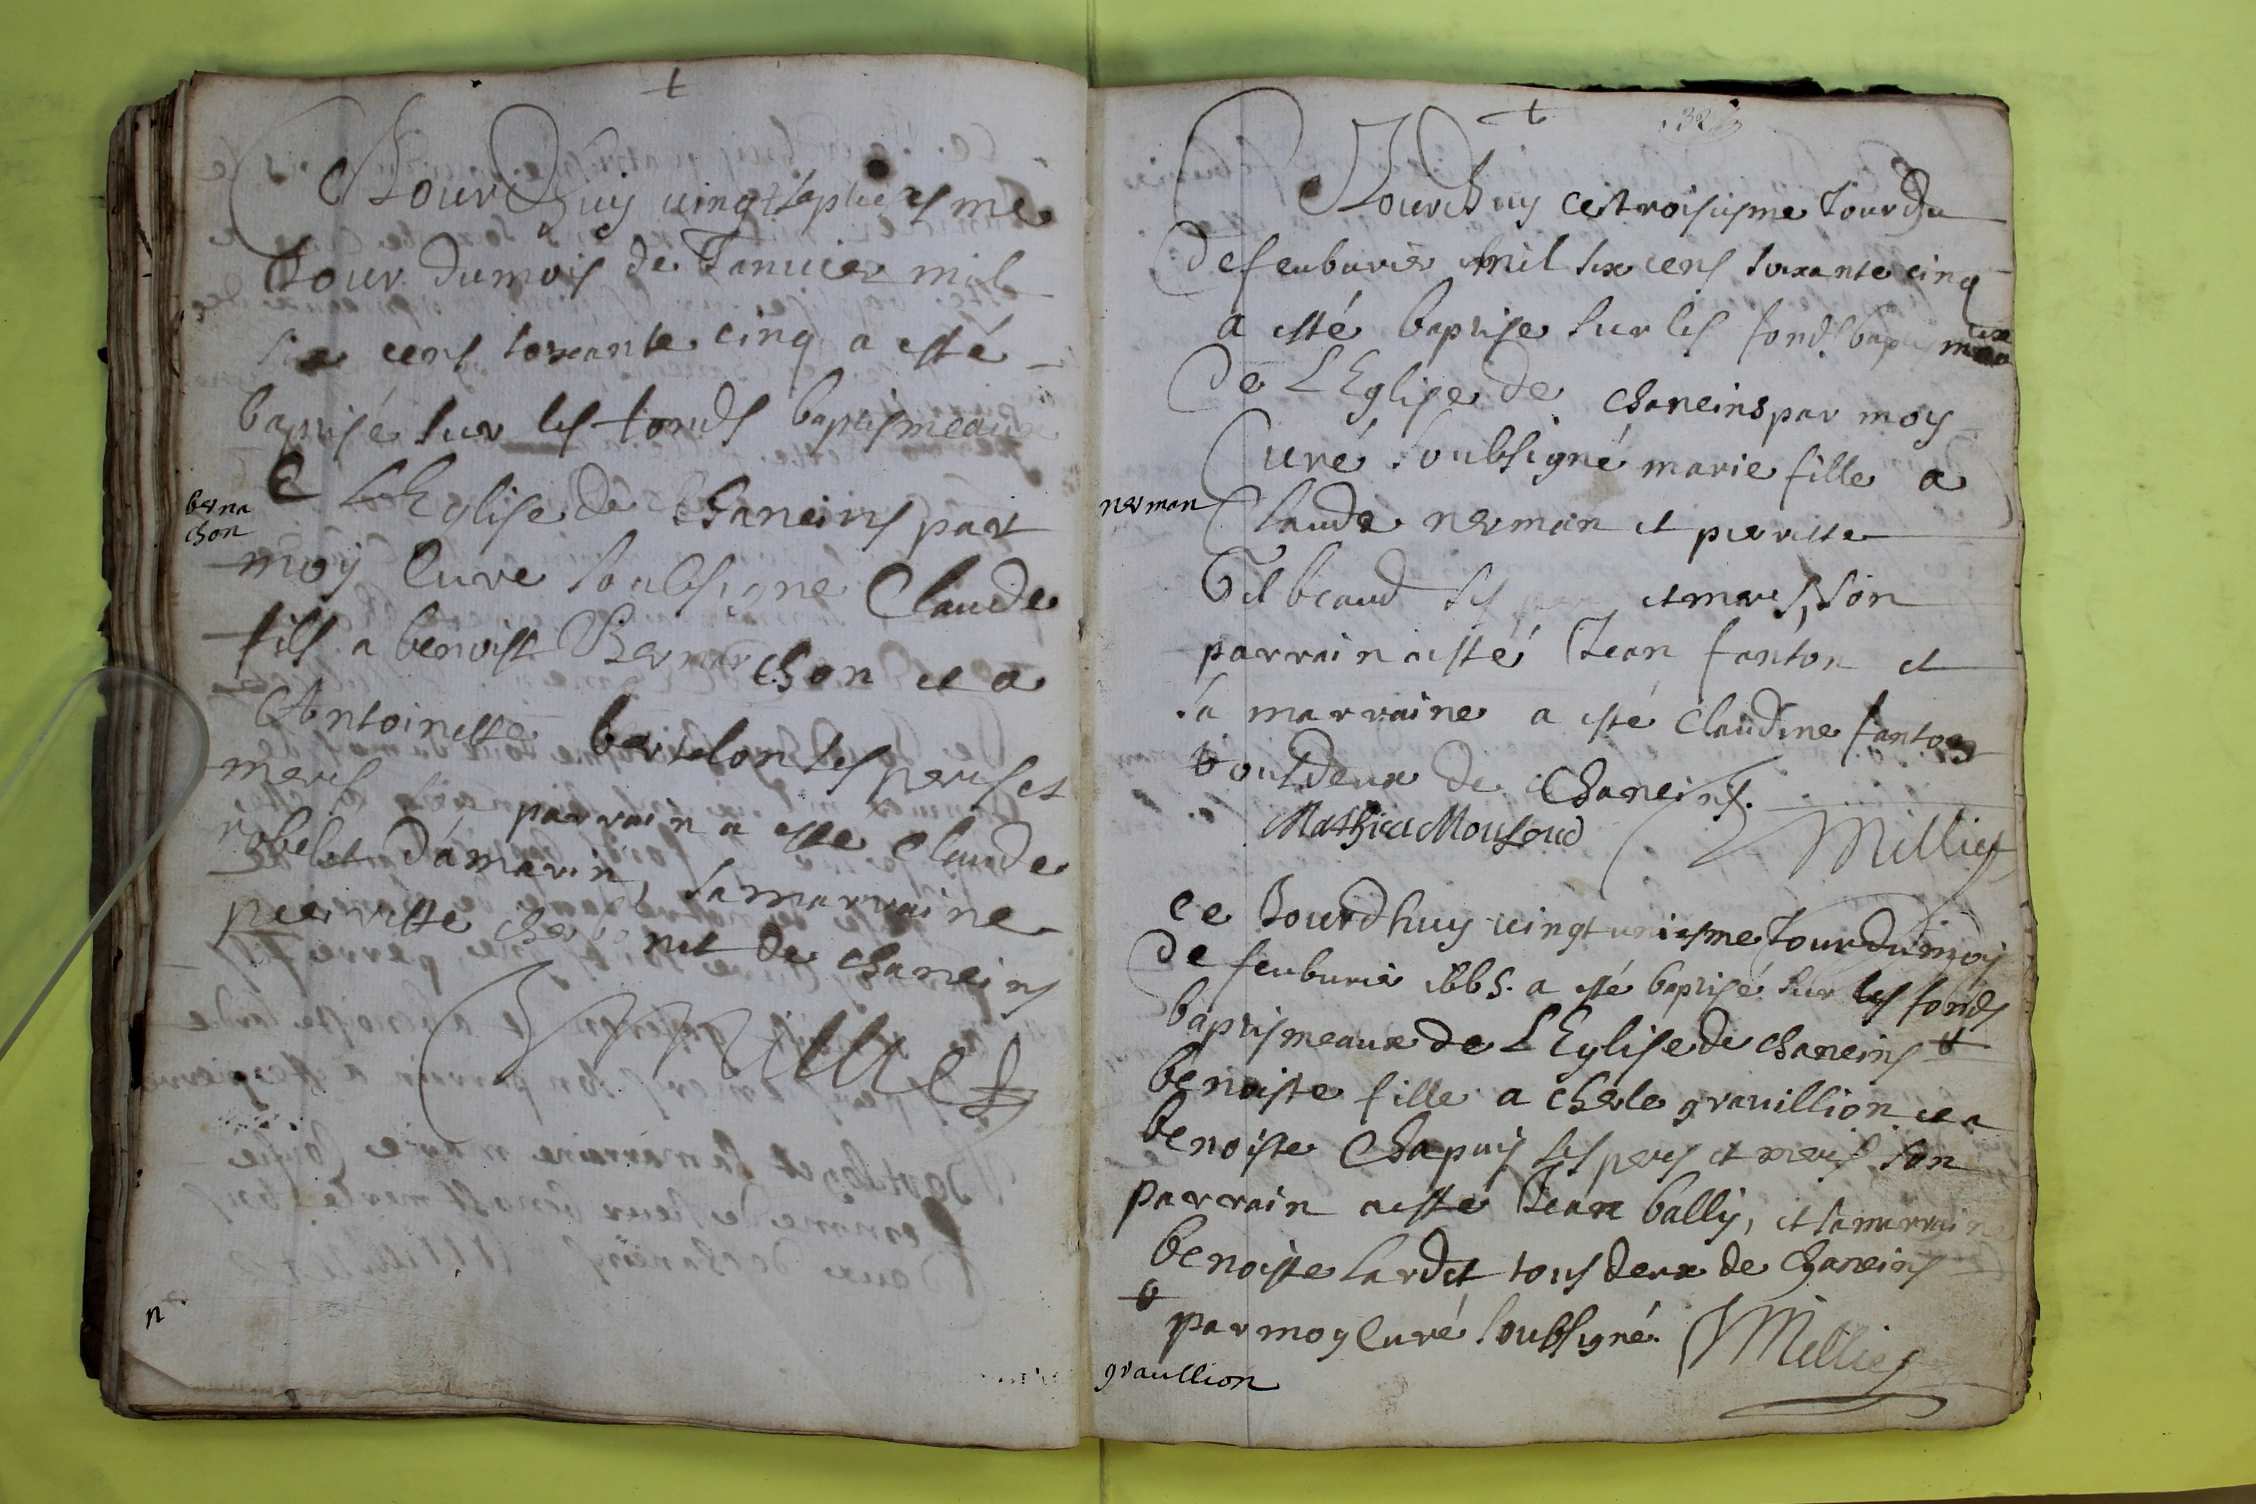 Ce Jourdhuy vingtseptiesme
Jour du mois de Januier mil
six cens soixante cinq a esté
baptisé sur les fonds baptismeaux
de L'Eglise de Chaneins par
berna
chon
moy Curé soubsigné Claude
fils a benoist Bernarchon et a
Antoinette bertelon ses peres et
meres parrain a esté Claude
robelet d'amarin, sa marraine
pierrette de chaneins
Millier
n
Ce Jourdhuy ce troisiesme Jour du
de feuburier mil six cens soixante cinq
a esté baptise sur les fonds baptismaux
de L'Eglise de Chaneins par moy
Curé soubsigné marie fille a
nerman
Claude nerman et pierrette
Gilbeaud ses et meres, son
parrain a esté Jean fanton et
sa marraine a esté Claudine fanton
tous deux de Chaneins.
Mathieu Monsoud
Millier
ce Jourdhuy vingt uniesme Jour du mois
de feuburié 1665. a esté baptisé sur les fonds
baptismeaux de L'Eglise de chaneins
benoiste fille a cherle grauillion et a
benoiste Chapuis ses peres et meres son
parrain a esté Jean bally, et sa marraine
benoiste lardet tous deux de Chaneins
par moy Curé soubsigné.
Millier
graullion